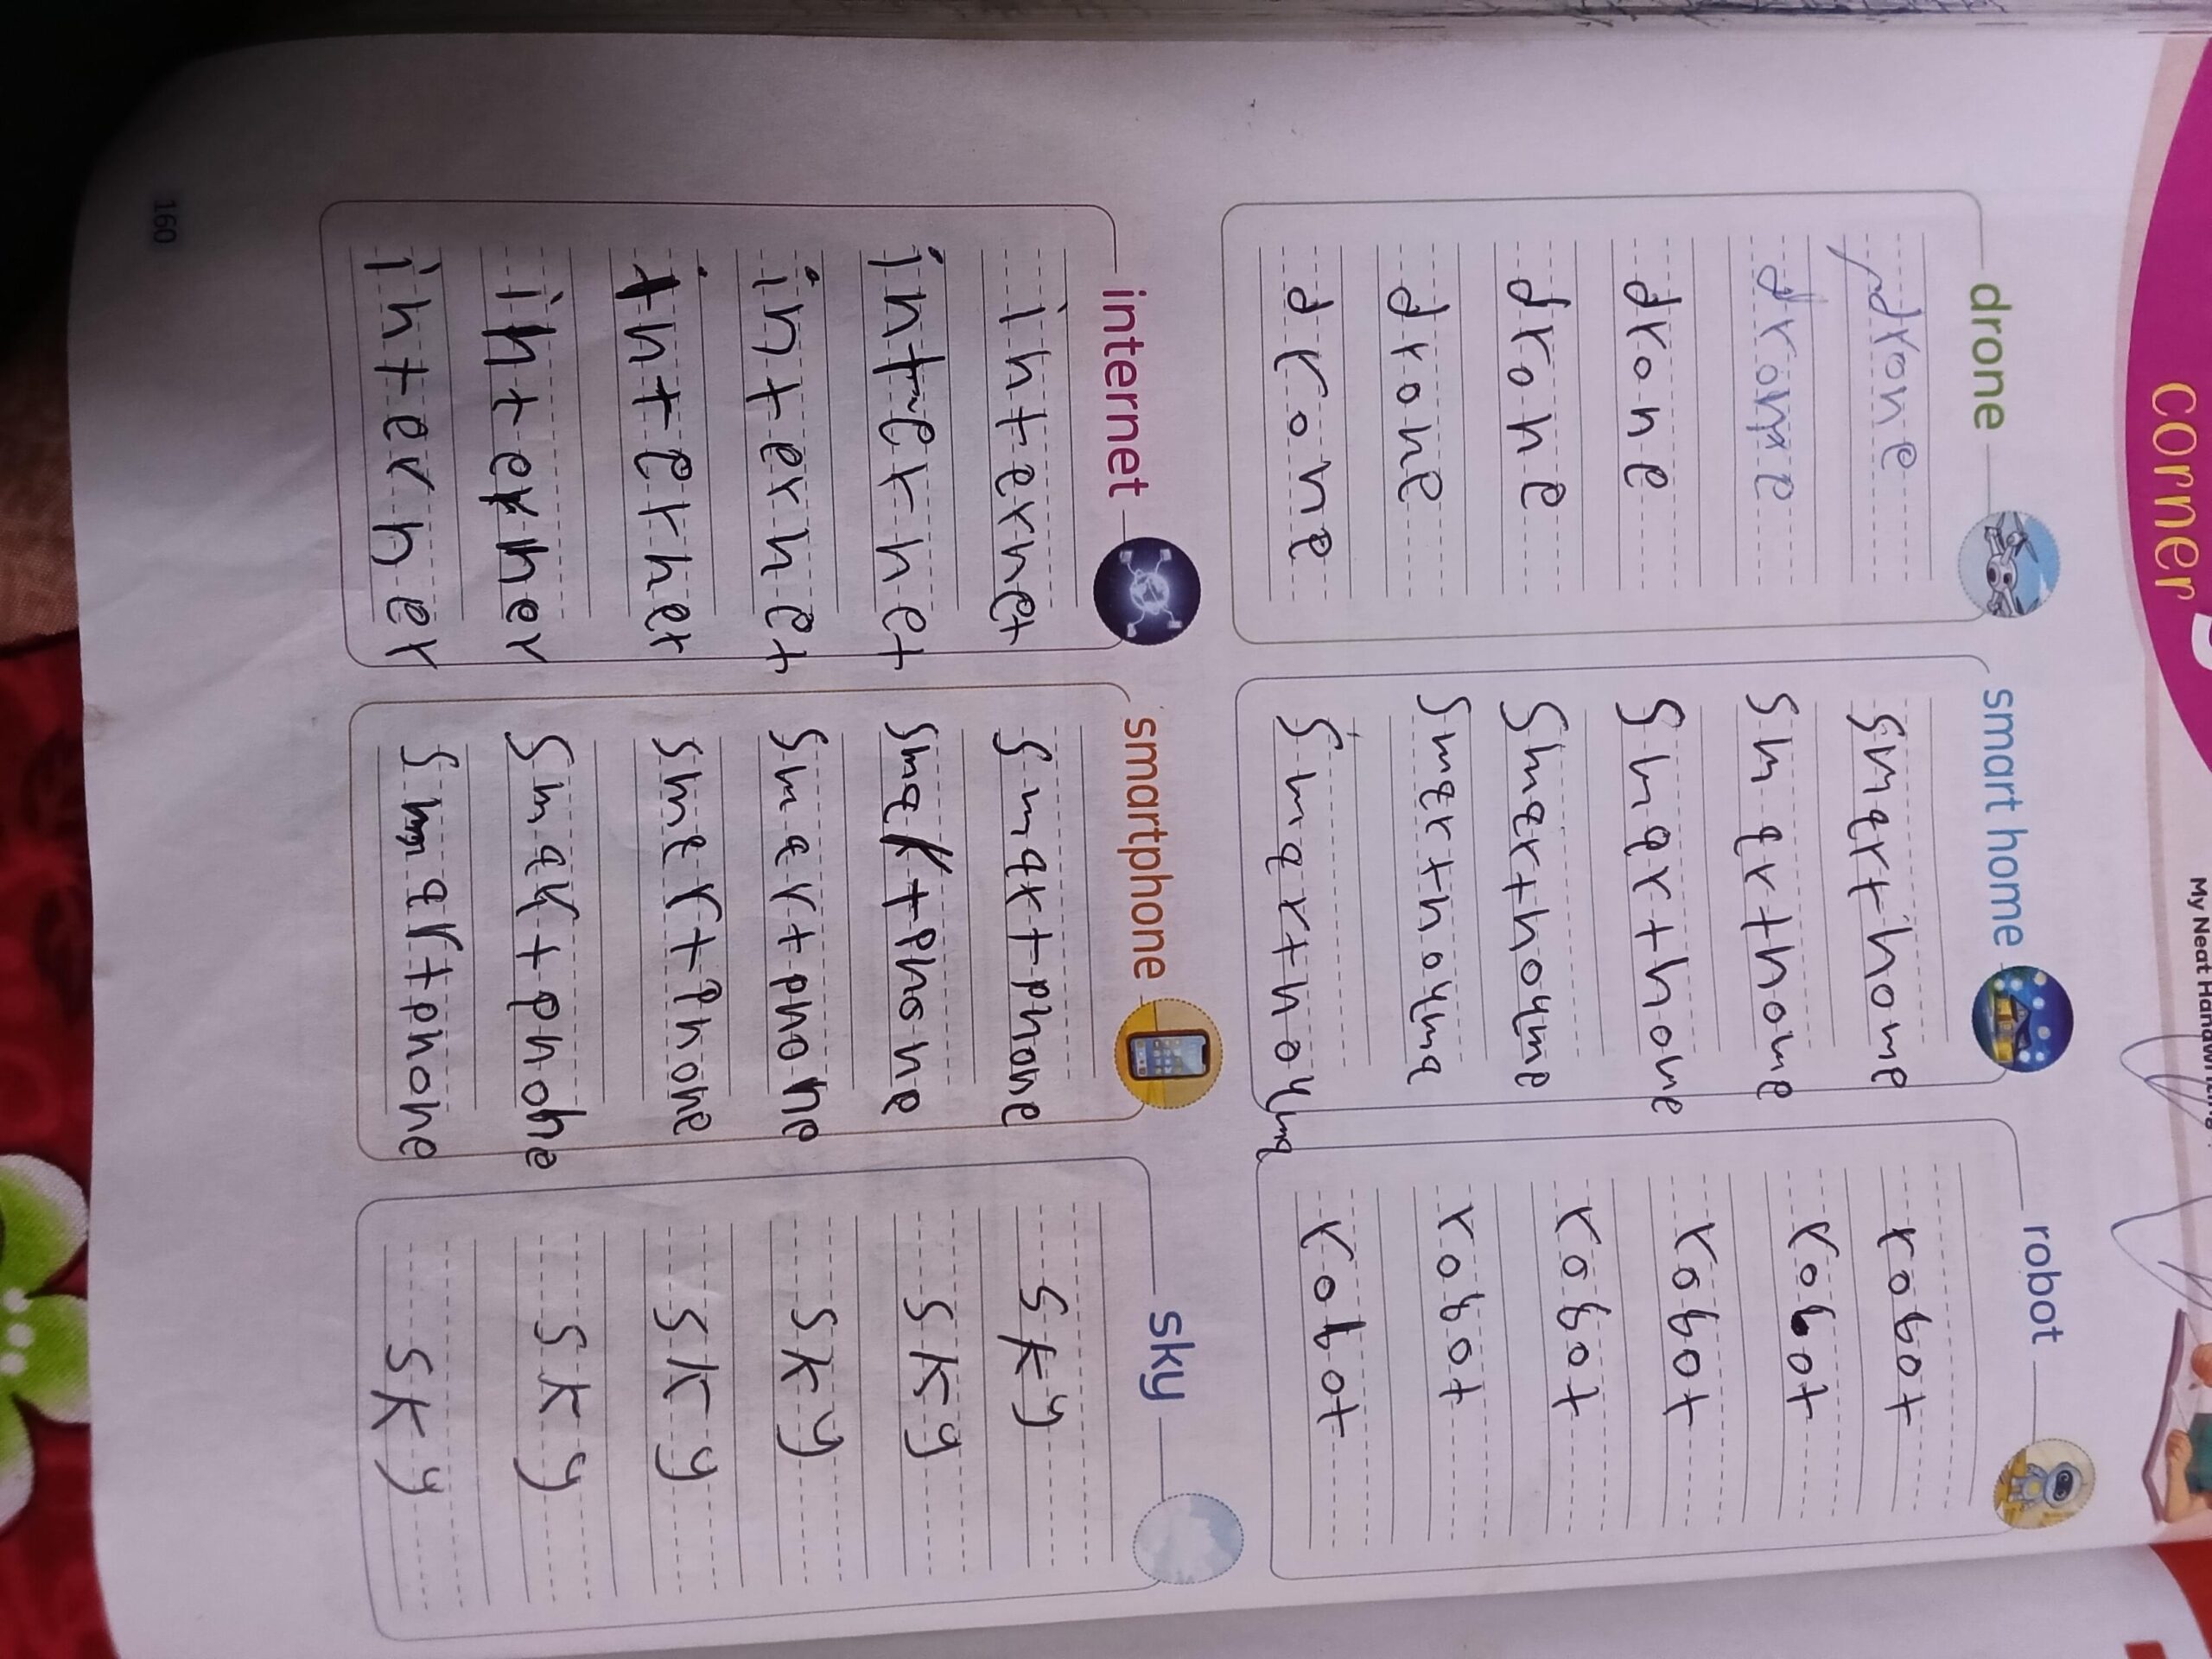 My Neat Handwriting
corner
drone
drone
drone
drone
drone
drone
drone
smart home
smart home
smart home
smart home
smart hoyme
smart hoyma
smart hoyma
robot
robot
robot
robot
robot
robot
robot
internet
internet
internet
internet
interher
interher
interher
smartphone
smartphone
smartphone
smartphone
smartphone
smartphone
smartphone
sky
sky
sky
sky
sky
sky
sky
160